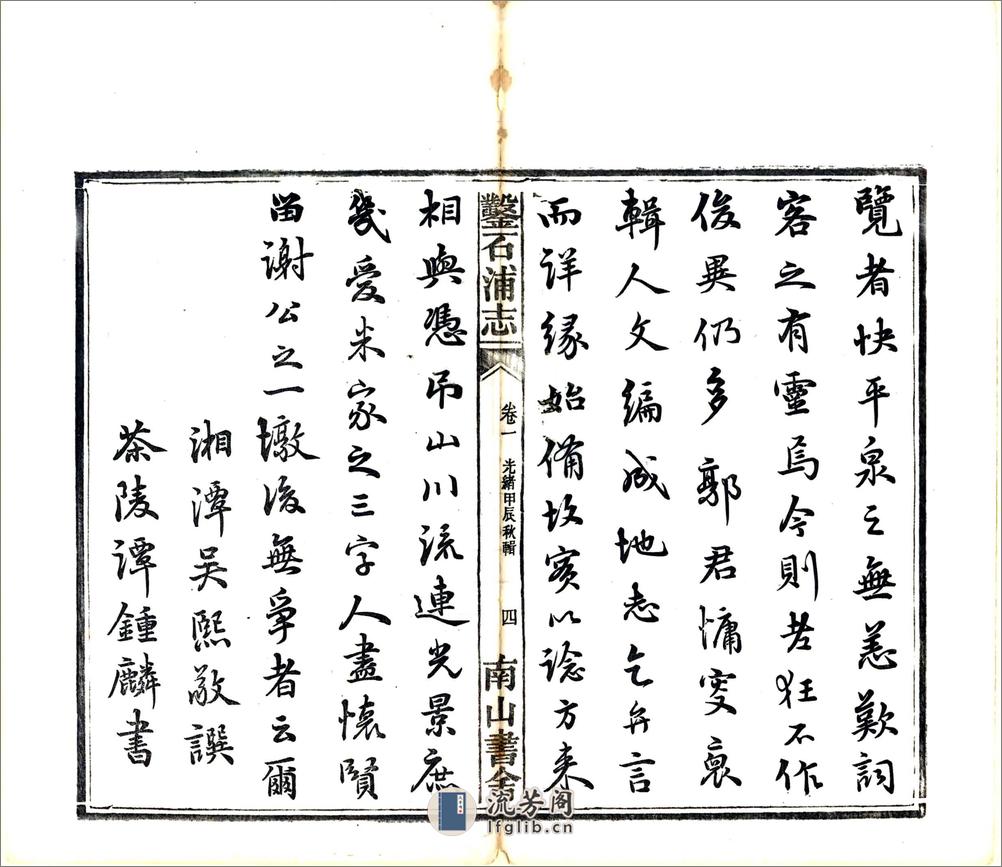 覽者快平泉之無恙歎詞
客之有靈焉今則老狂不作
俊異仍多郭君慵叟裒
輯人文編成地志乞弁言
而詳緣始備故實以諗方來
鑿石浦志
卷一
光緒甲辰秋輯
四
南山書舍
相與憑弔山川流連光景庶
幾愛米家之三字人盡懷賢
留謝公之一墩後無爭者云爾
湘潭吳熙敬譔
茶陵譚鍾麟書
流芳阁
lfglib.cn